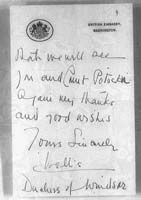 BRITISH EMBASSY,
WASHINGTON.
that we will see
you and Count Potocki
Again my thanks
and good wishes
Yours Sincerely
Wallis
Duchess of Windsor